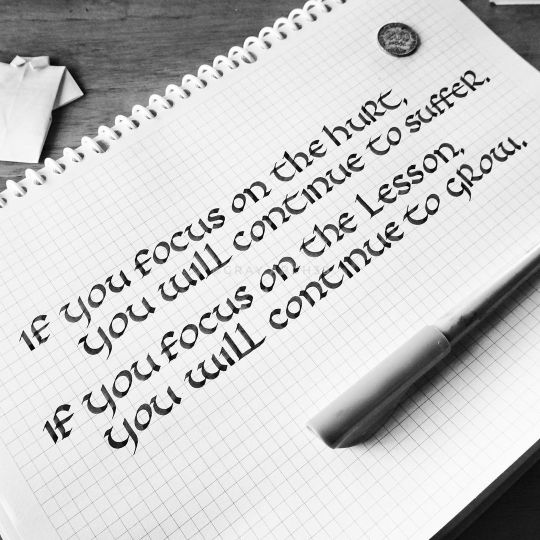 If you focus on the hurt,
you will continue to suffer.
If you focus on the Lesson,
you will continue to grow.